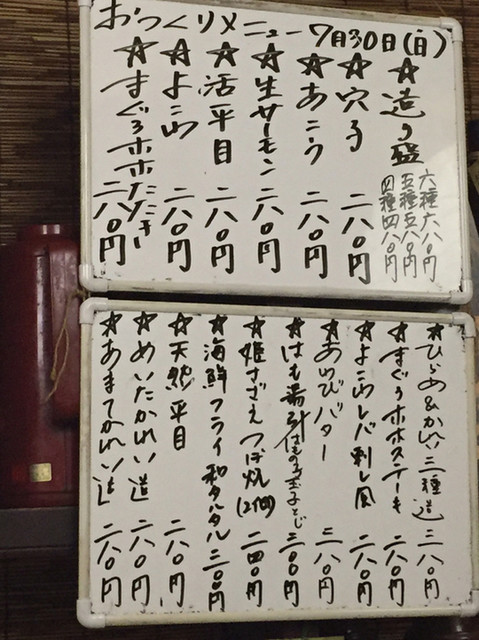 おつくりメニュー 7月30日(日)
☆造り盛 六種六八〇円
五種五八〇円
四種四八〇円
☆穴子 二八〇円
☆あこう 二八〇円
☆生サーモン 二八〇円
☆活平目 二八〇円
☆よこわ 二八〇円
☆まぐろホホたたき 二八〇円
☆ひらめ&かれい三種造 三八〇円
☆まぐろホホステーキ 二八〇円
☆よこわレバ刺し風 二八〇円
☆あわびバター 三八〇円
☆はも湯引 はもの子玉子とじ 三〇〇円
☆姫さざえつぼ焼(2個) 二四〇円
☆海鮮フライ和タルタル 三〇〇円
☆天然平目 二八〇円
☆めいたかれい造 二八〇円
☆あまてかれい造 二八〇円